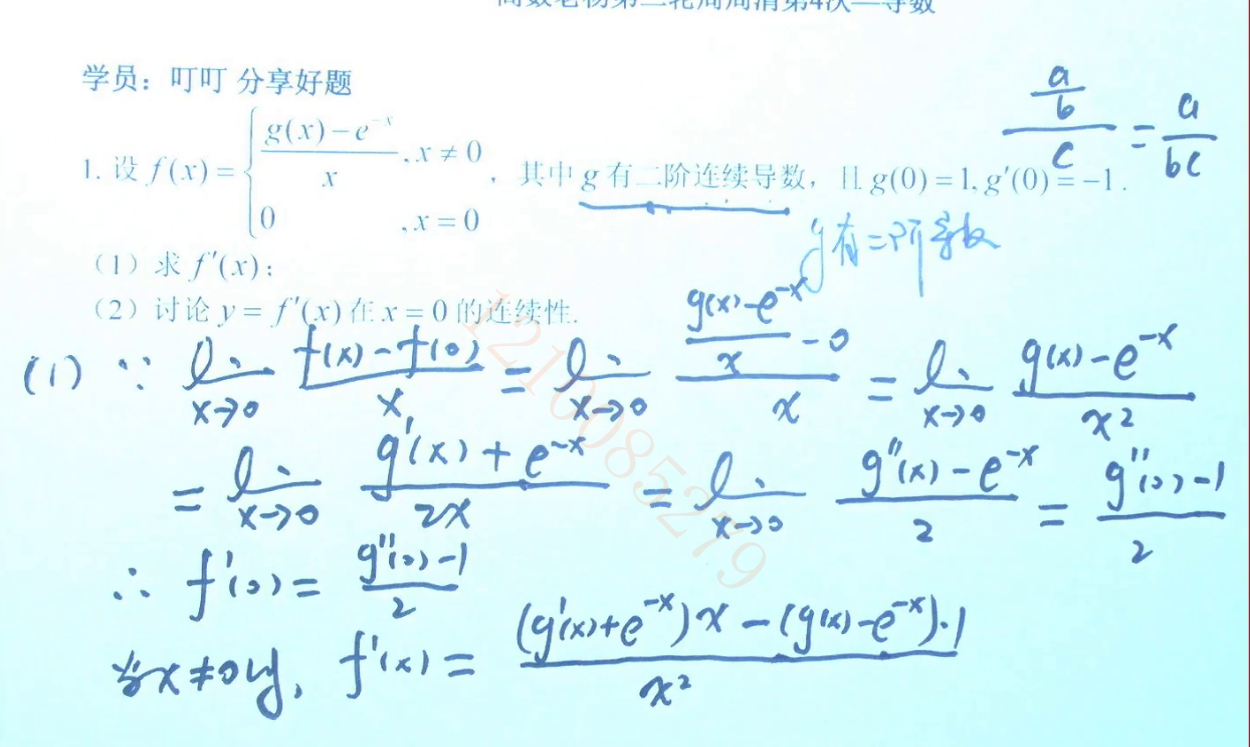 高数老杨第二轮周周清第4次—导数
学员：叮叮 分享好题
a/b / c = a/bc
1. 设 f(x) = { (g(x)−e^{-x})/x , x ≠ 0 ; 0 , x = 0 , 其中 g 有二阶连续导数，且 g(0) = 1, g′(0) = −1 .
g有二阶导数
（1）求 f′(x)；
（2）讨论 y = f′(x) 在 x = 0 的连续性.
(1) ∵ lim_{x→0} (f(x)−f(0))/x = lim_{x→0} ((g(x)−e^{-x})/x −0)/x = lim_{x→0} (g(x)−e^{-x})/x²
= lim_{x→0} (g′(x)+e^{-x})/2x = lim_{x→0} (g″(x)−e^{-x})/2 = (g″(0)−1)/2
∴ f′(0) = (g″(0)−1)/2
当x≠0时, f′(x) = ((g′(x)+e^{-x})x−(g(x)−e^{-x})·1)/x²
1210085279